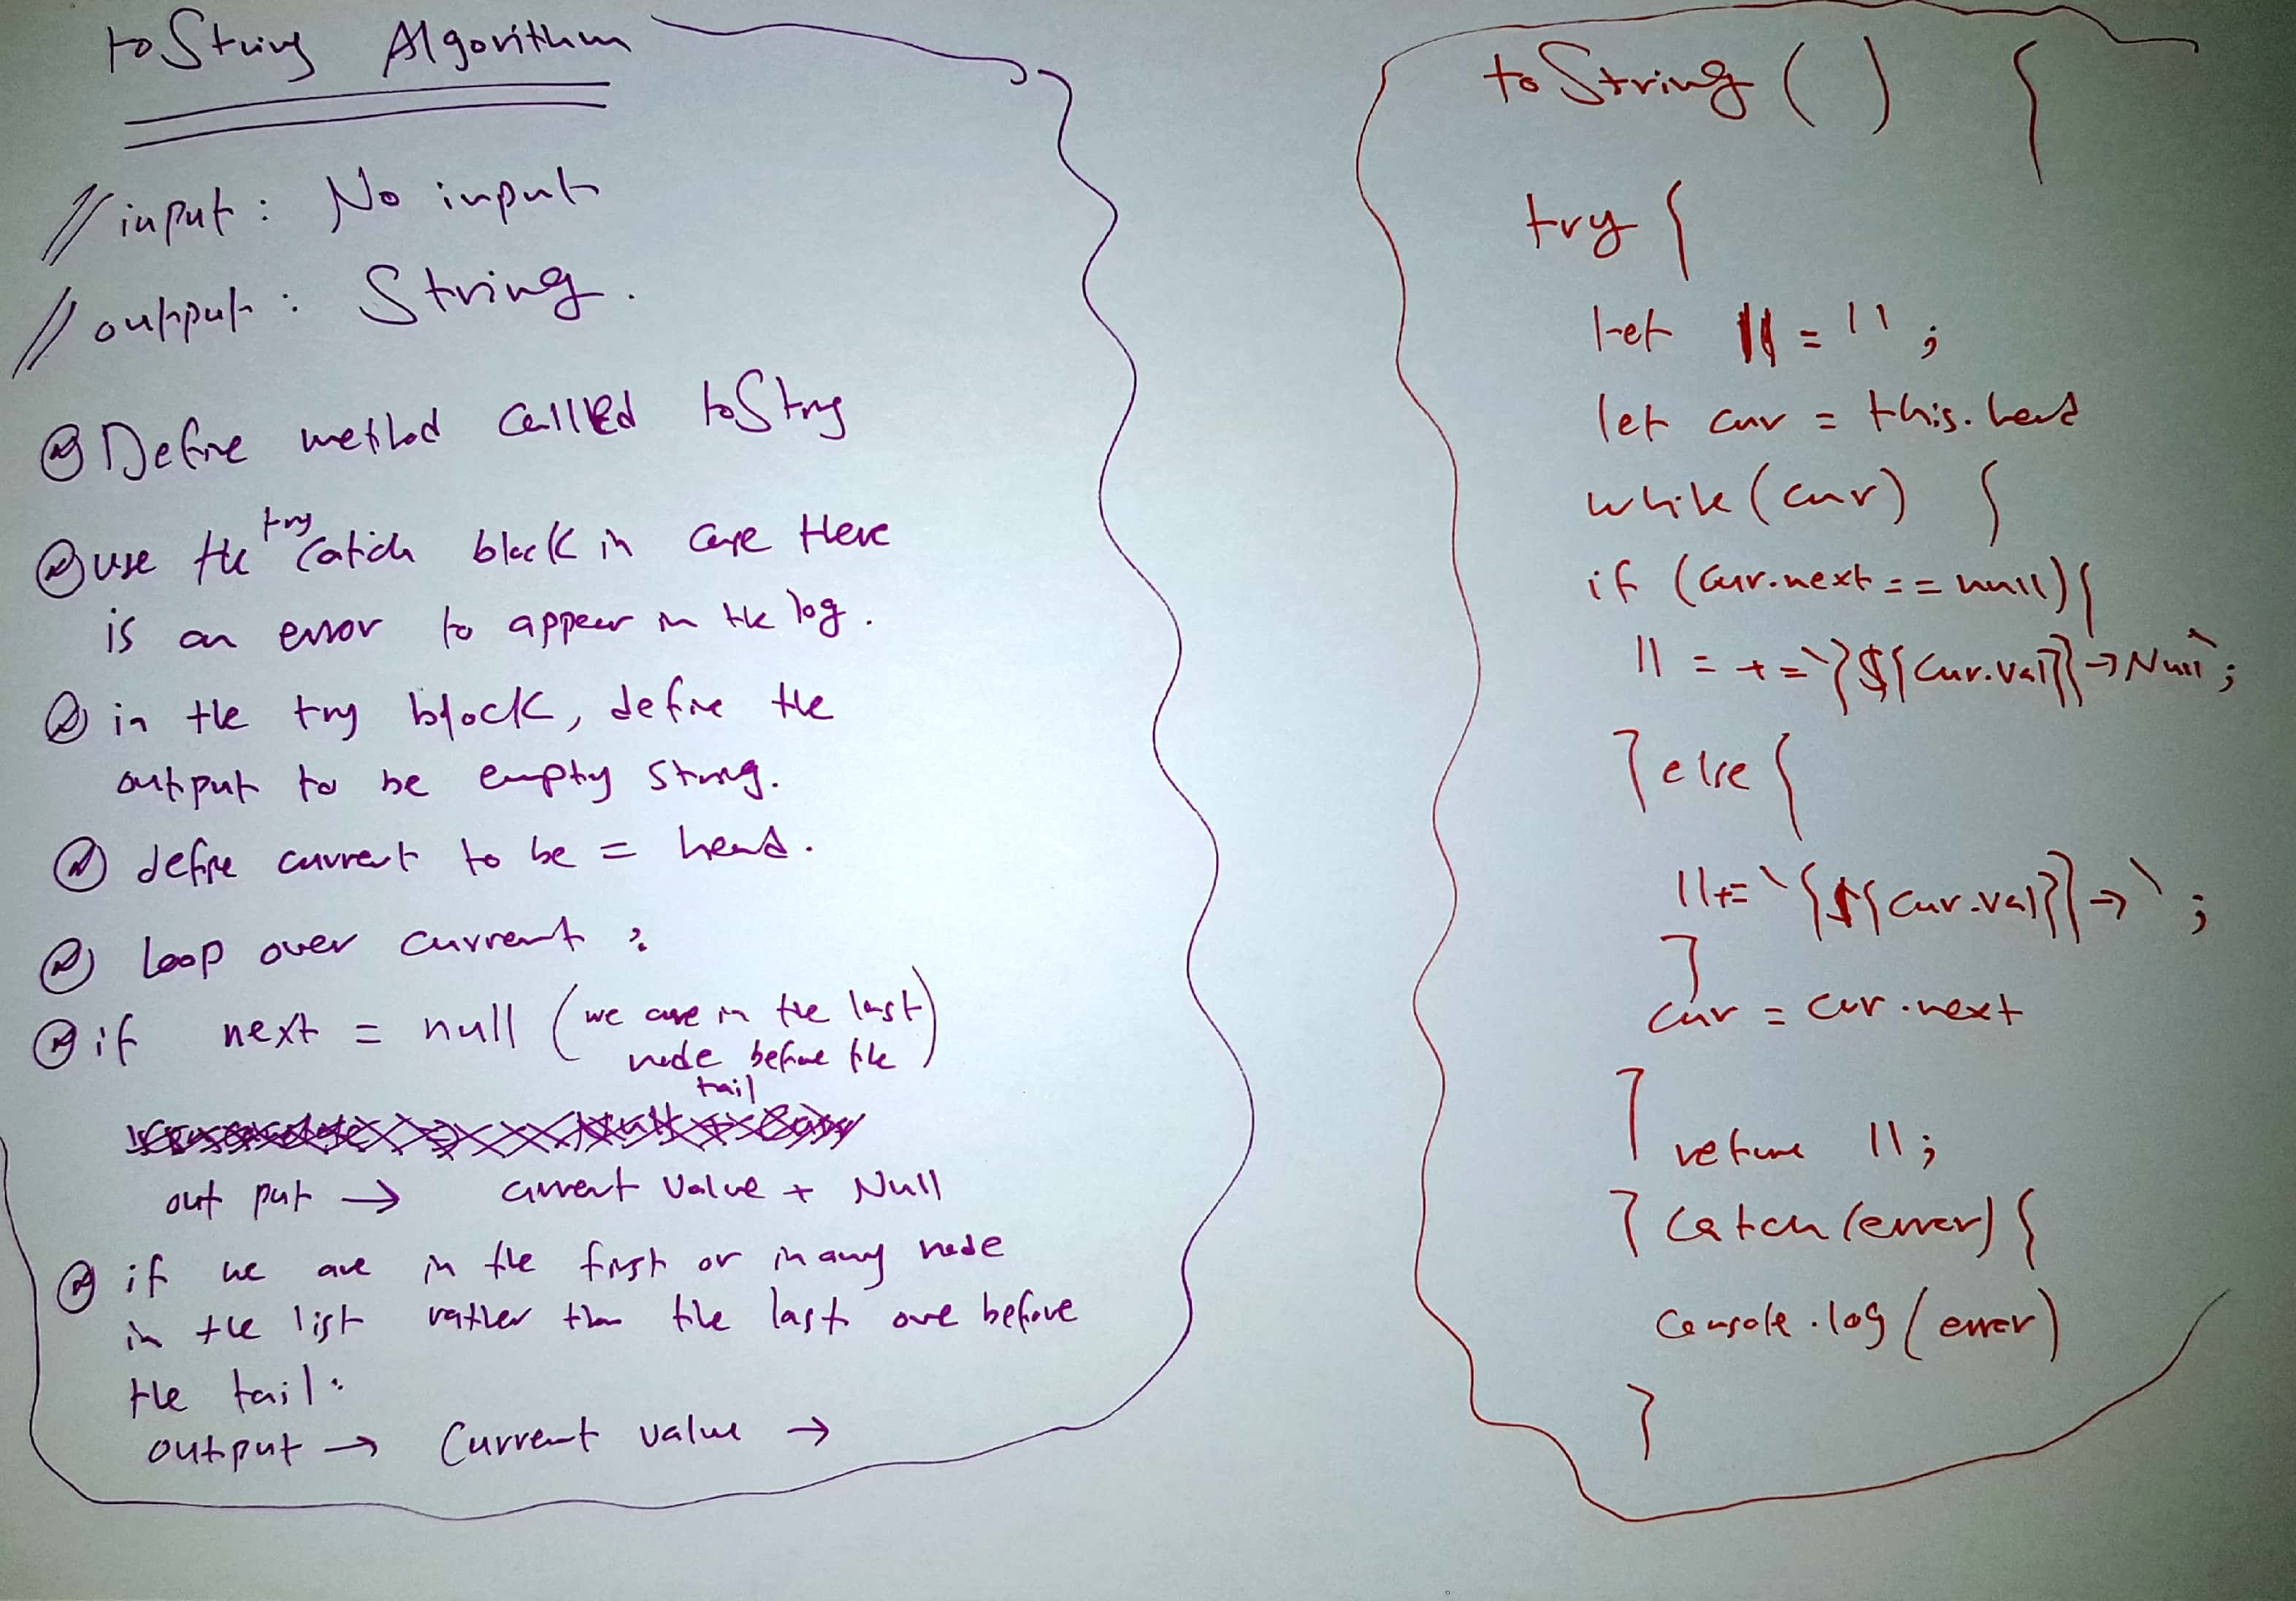 toString Algorithm
// input : No input
// output : String.
Define method called toString
use the try catch block in case there
is an error to appear in the log.
in the try block, define the
output to be empty string.
define current to be = head.
Loop over current :
if next = null (we are in the last
node before the
tail)
out put → current value + Null
if we are in the first or in any node
in the list rather than the last one before
the tail:
output → Current value →
toString ( ) {
try {
let ll = '' ;
let cur = this.head
while (cur) {
if (cur.next == null) {
ll = += `{${cur.val}} → Null` ;
} else {
ll += `{${cur.val}} → ` ;
}
cur = cur.next
}
return ll ;
} catch (error) {
console.log (error)
}